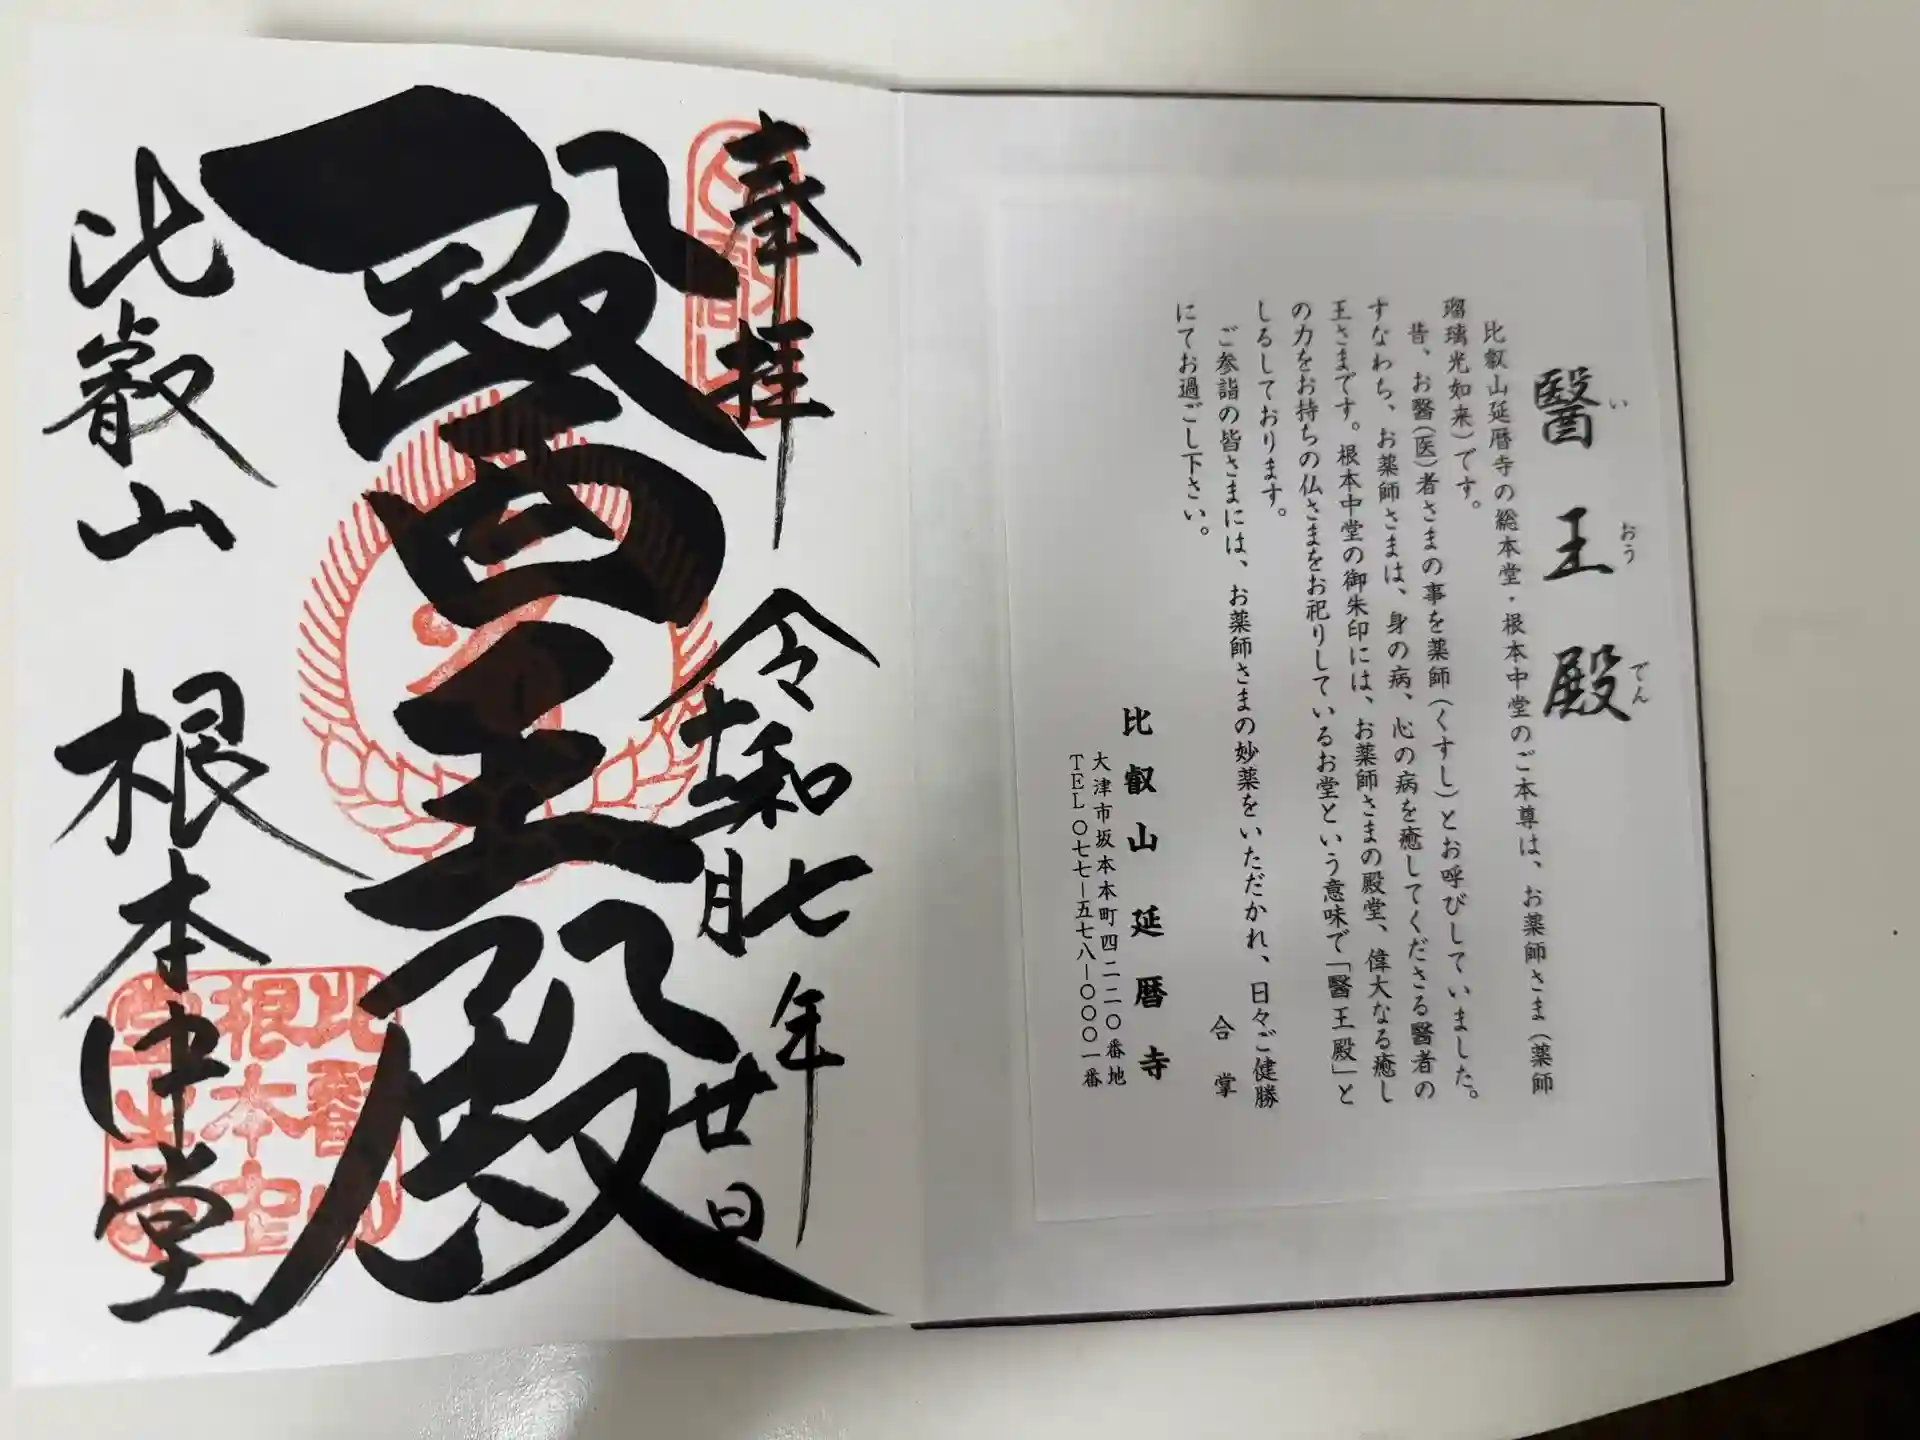 醫王殿
い おう でん
比叡山延暦寺の総本堂・根本中堂のご本尊は、お薬師さま(薬師
瑠璃光如来)です。
昔、お醫(医)者さまの事を薬師(くすし)とお呼びしていました。
すなわち、お薬師さまは、身の病、心の病を癒してくださる醫者の
王さまです。根本中堂の御朱印には、お薬師さまの殿堂、偉大なる癒し
の力をお持ちの仏さまをお祀りしているお堂という意味で「醫王殿」と
しるしております。
ご参詣の皆さまには、お薬師さまの妙薬をいただかれ、日々ご健勝
にてお過ごし下さい。
合掌
比叡山延暦寺
大津市坂本本町四二二〇番地
TEL〇七七―五七八―〇〇〇一番
奉拝
令和七年
十一月廿日
醫王殿
比叡山 根本中堂
比叡山
根本中
堂之印